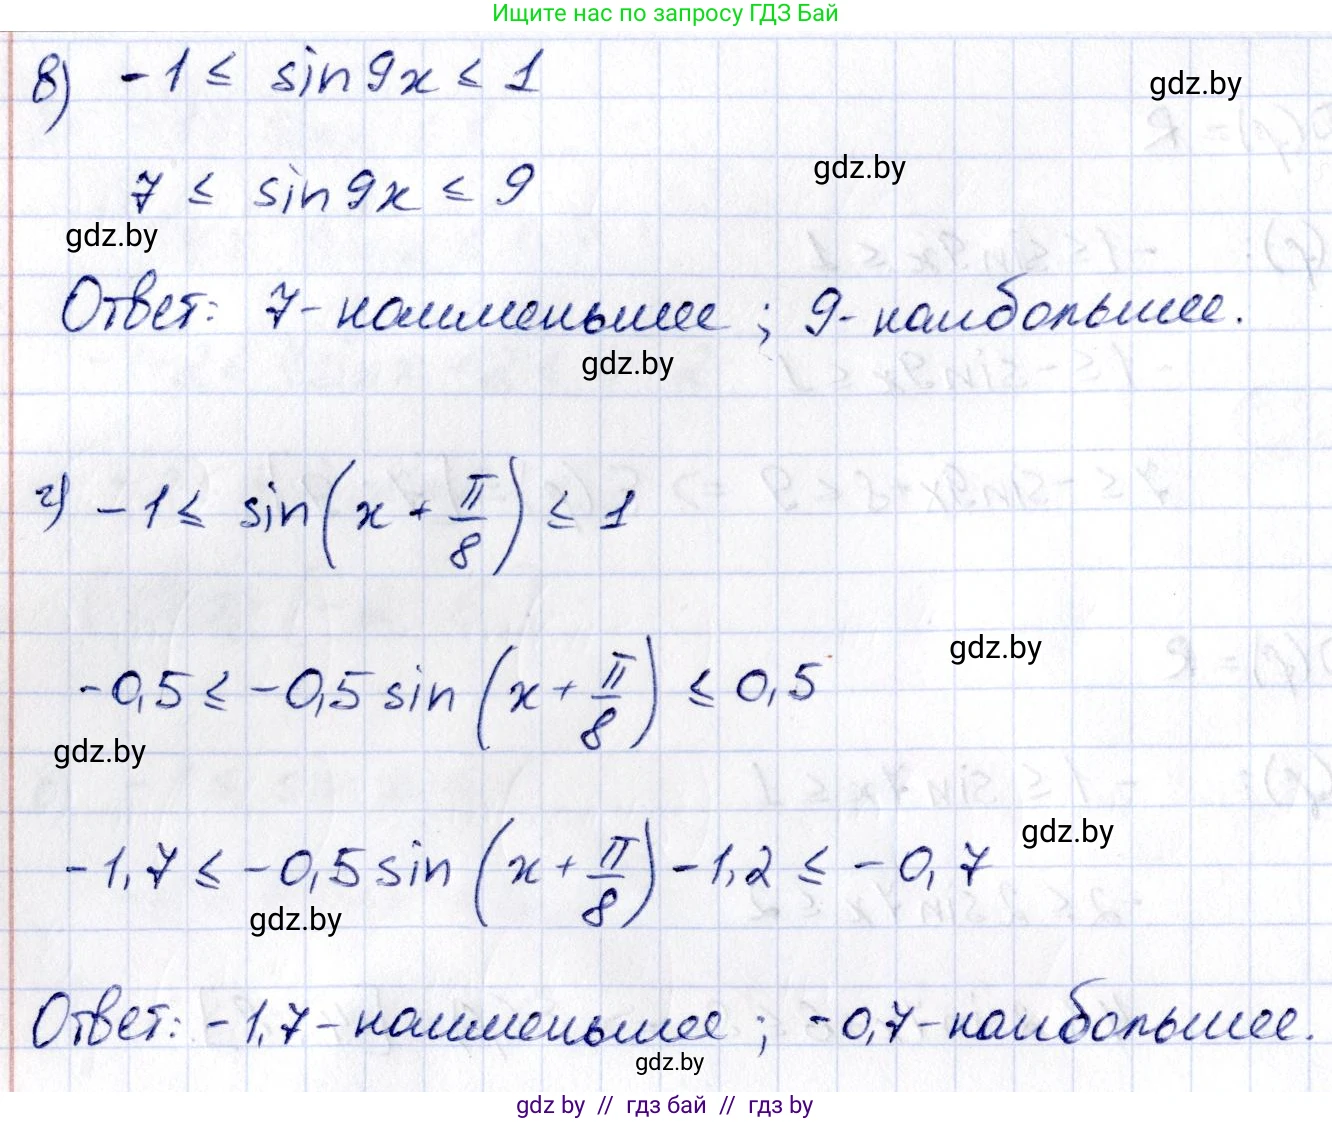 Ищите нас по запросу ГДЗ Бай
в) -1 ≤ sin 9x ≤ 1
gdz.by
gdz.by
7 ≤ sin 9x ≤ 9
gdz.by
Ответ: 7 - наименьшее ; 9 - наибольшее.
gdz.by
г) -1 ≤ sin(x + π/8) ≤ 1
gdz.by
-0,5 ≤ -0,5 sin(x + π/8) ≤ 0,5
gdz.by
gdz.by
-1,7 ≤ -0,5 sin(x + π/8) - 1,2 ≤ -0,7
gdz.by
Ответ: -1,7 - наименьшее ; -0,7 - наибольшее.
gdz.by
gdz by // гдз бай // гдз by